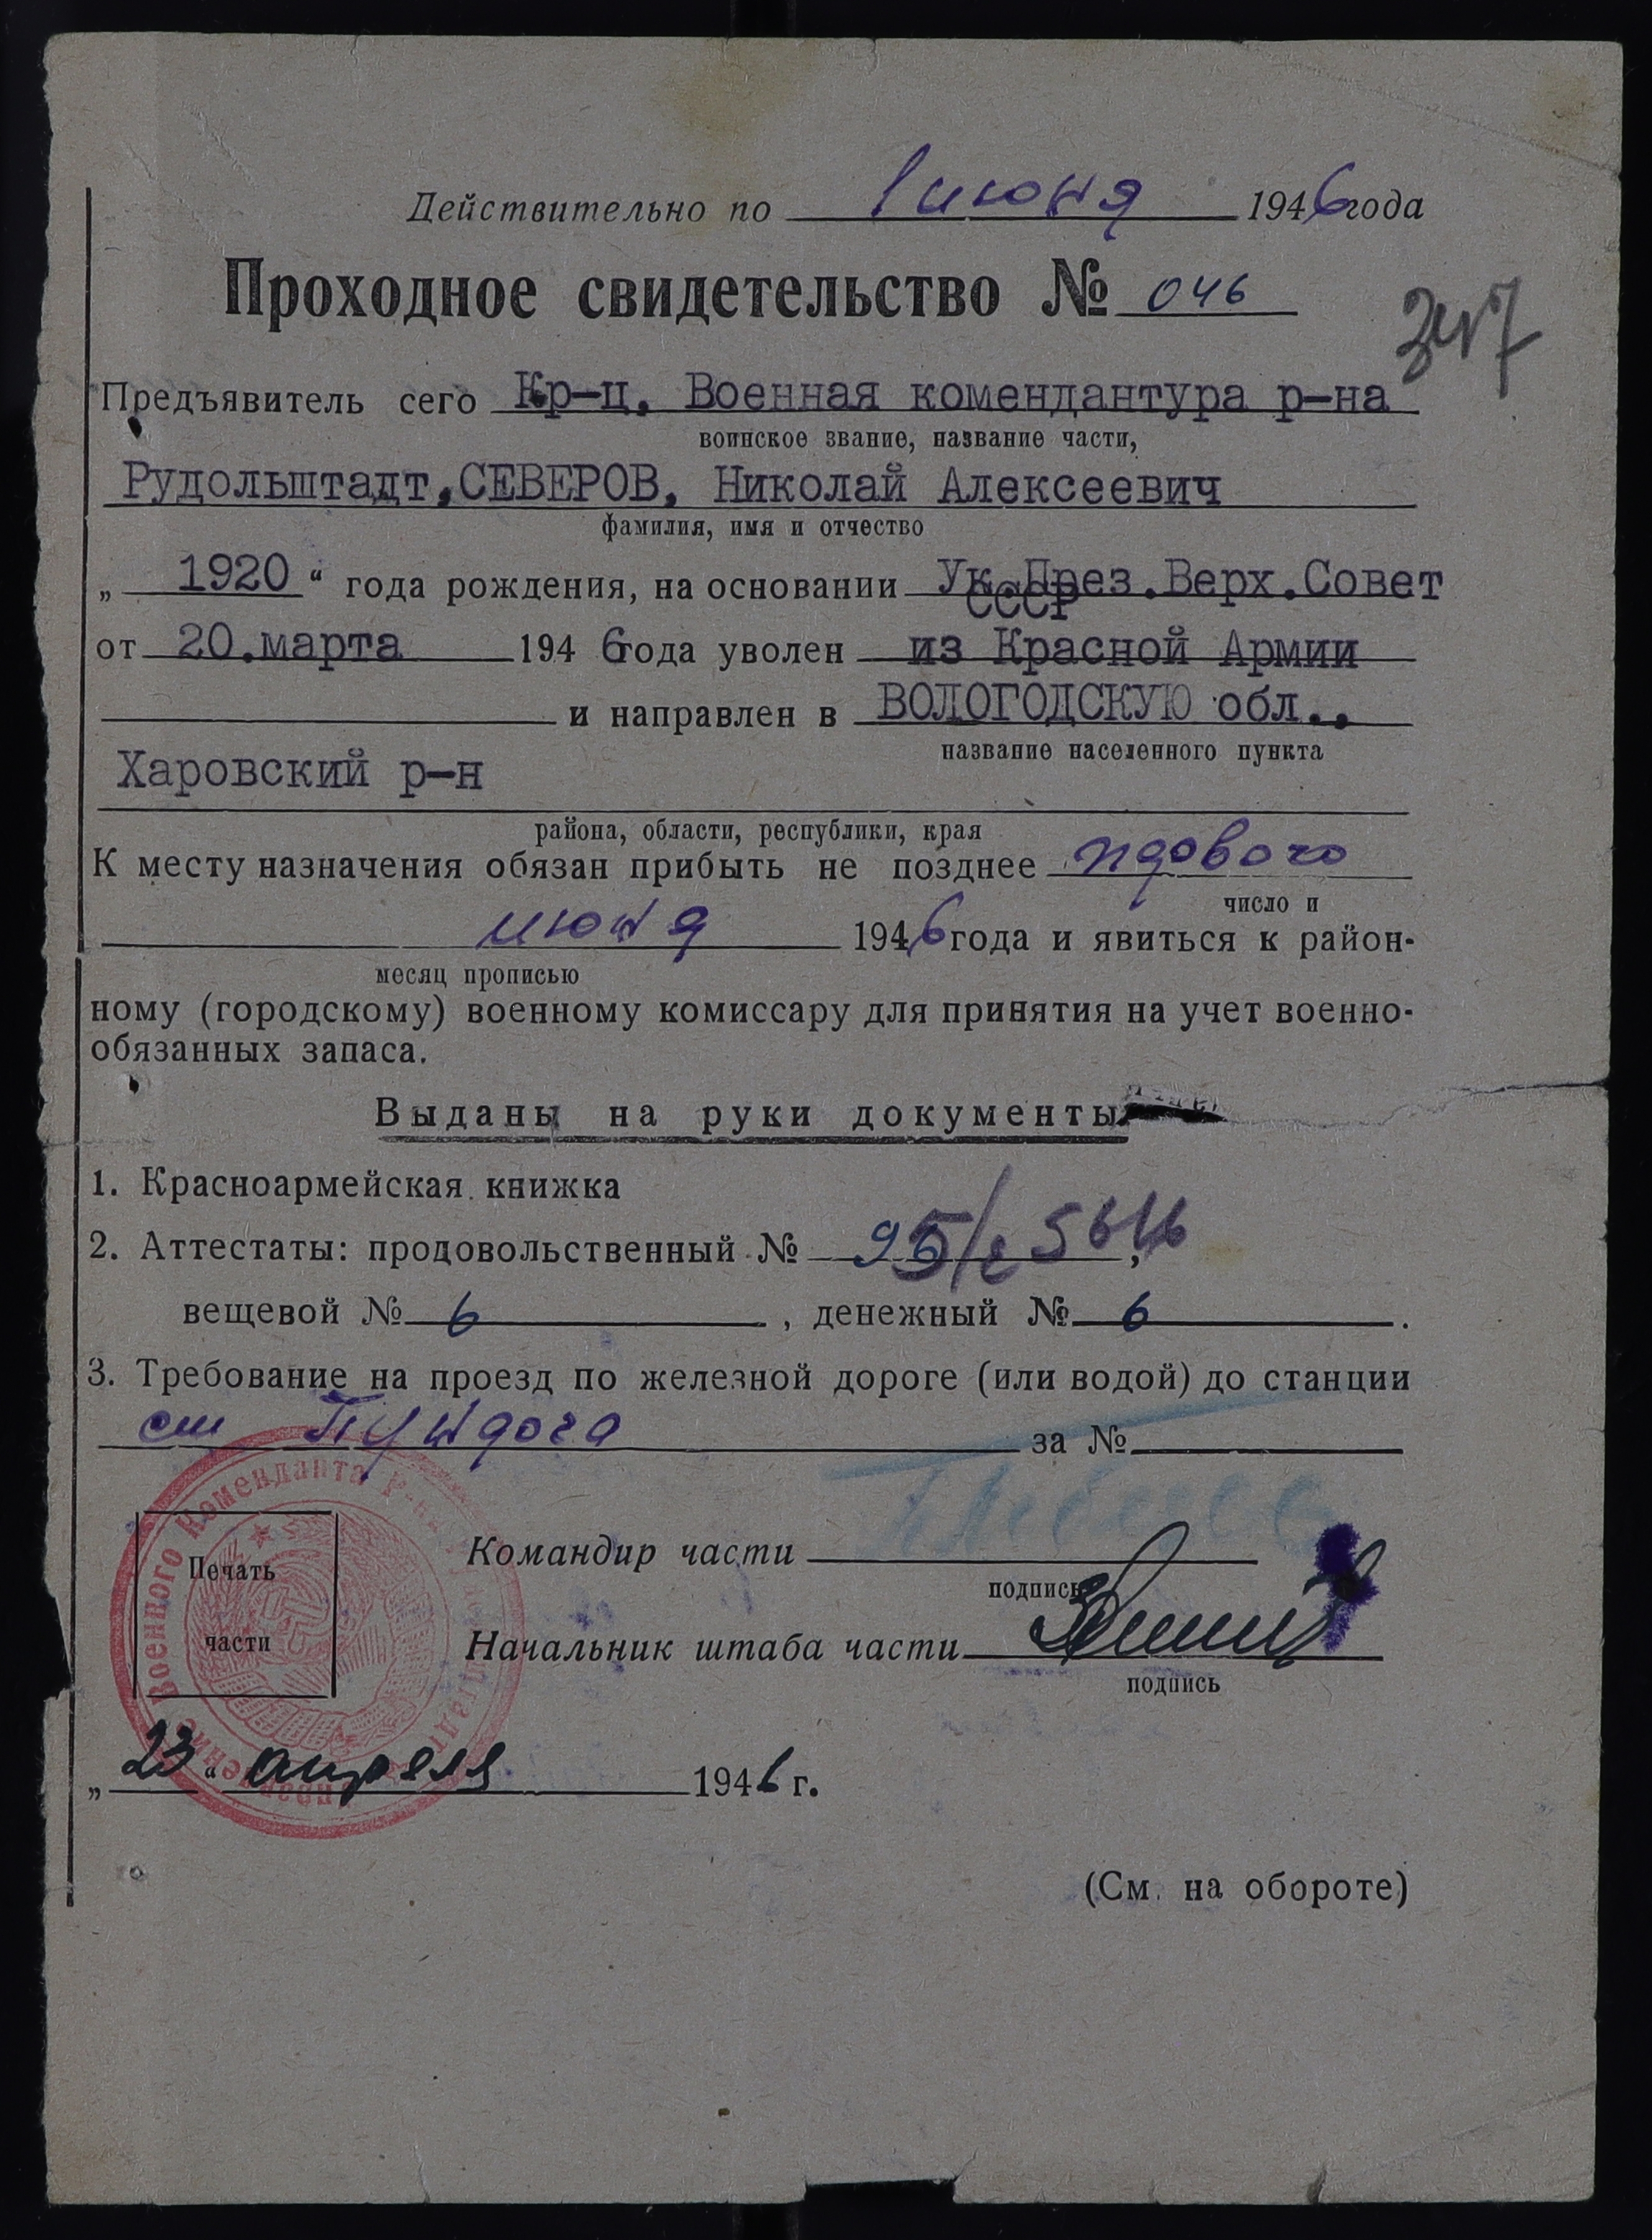 Действительно по 1 июня 1946 года
Проходное свидетельство № 046
347
Предъявитель сего Кр-ц, Военная комендантура р-на
воинское звание, название части,
Рудольштадт, СЕВЕРОВ, Николай Алексеевич
фамилия, имя и отчество
„ 1920 “ года рождения, на основании Ук.През.Верх.Совет
СССР
от 20.марта 1946 года уволен из Красной Армии
и направлен в ВОЛОГОДСКУЮ обл.,
название населенного пункта
Харовский р-н
района, области, республики, края
К месту назначения обязан прибыть не позднее
число и
июня 1946 года и явиться к район-
месяц прописью
ному (городскому) военному комиссару для принятия на учет военно-
обязанных запаса.
Выданы на руки документы
1. Красноармейская книжка
2. Аттестаты: продовольственный №
вещевой № 6 , денежный № 6 .
3. Требование на проезд по железной дороге (или водой) до станции
ст Пундога за №
Военного Коменданта Р-на
Печать
части
Командир части
подпись
Начальник штаба части
подпись
„ 23 “ апреля 1946 г.
(См. на обороте)